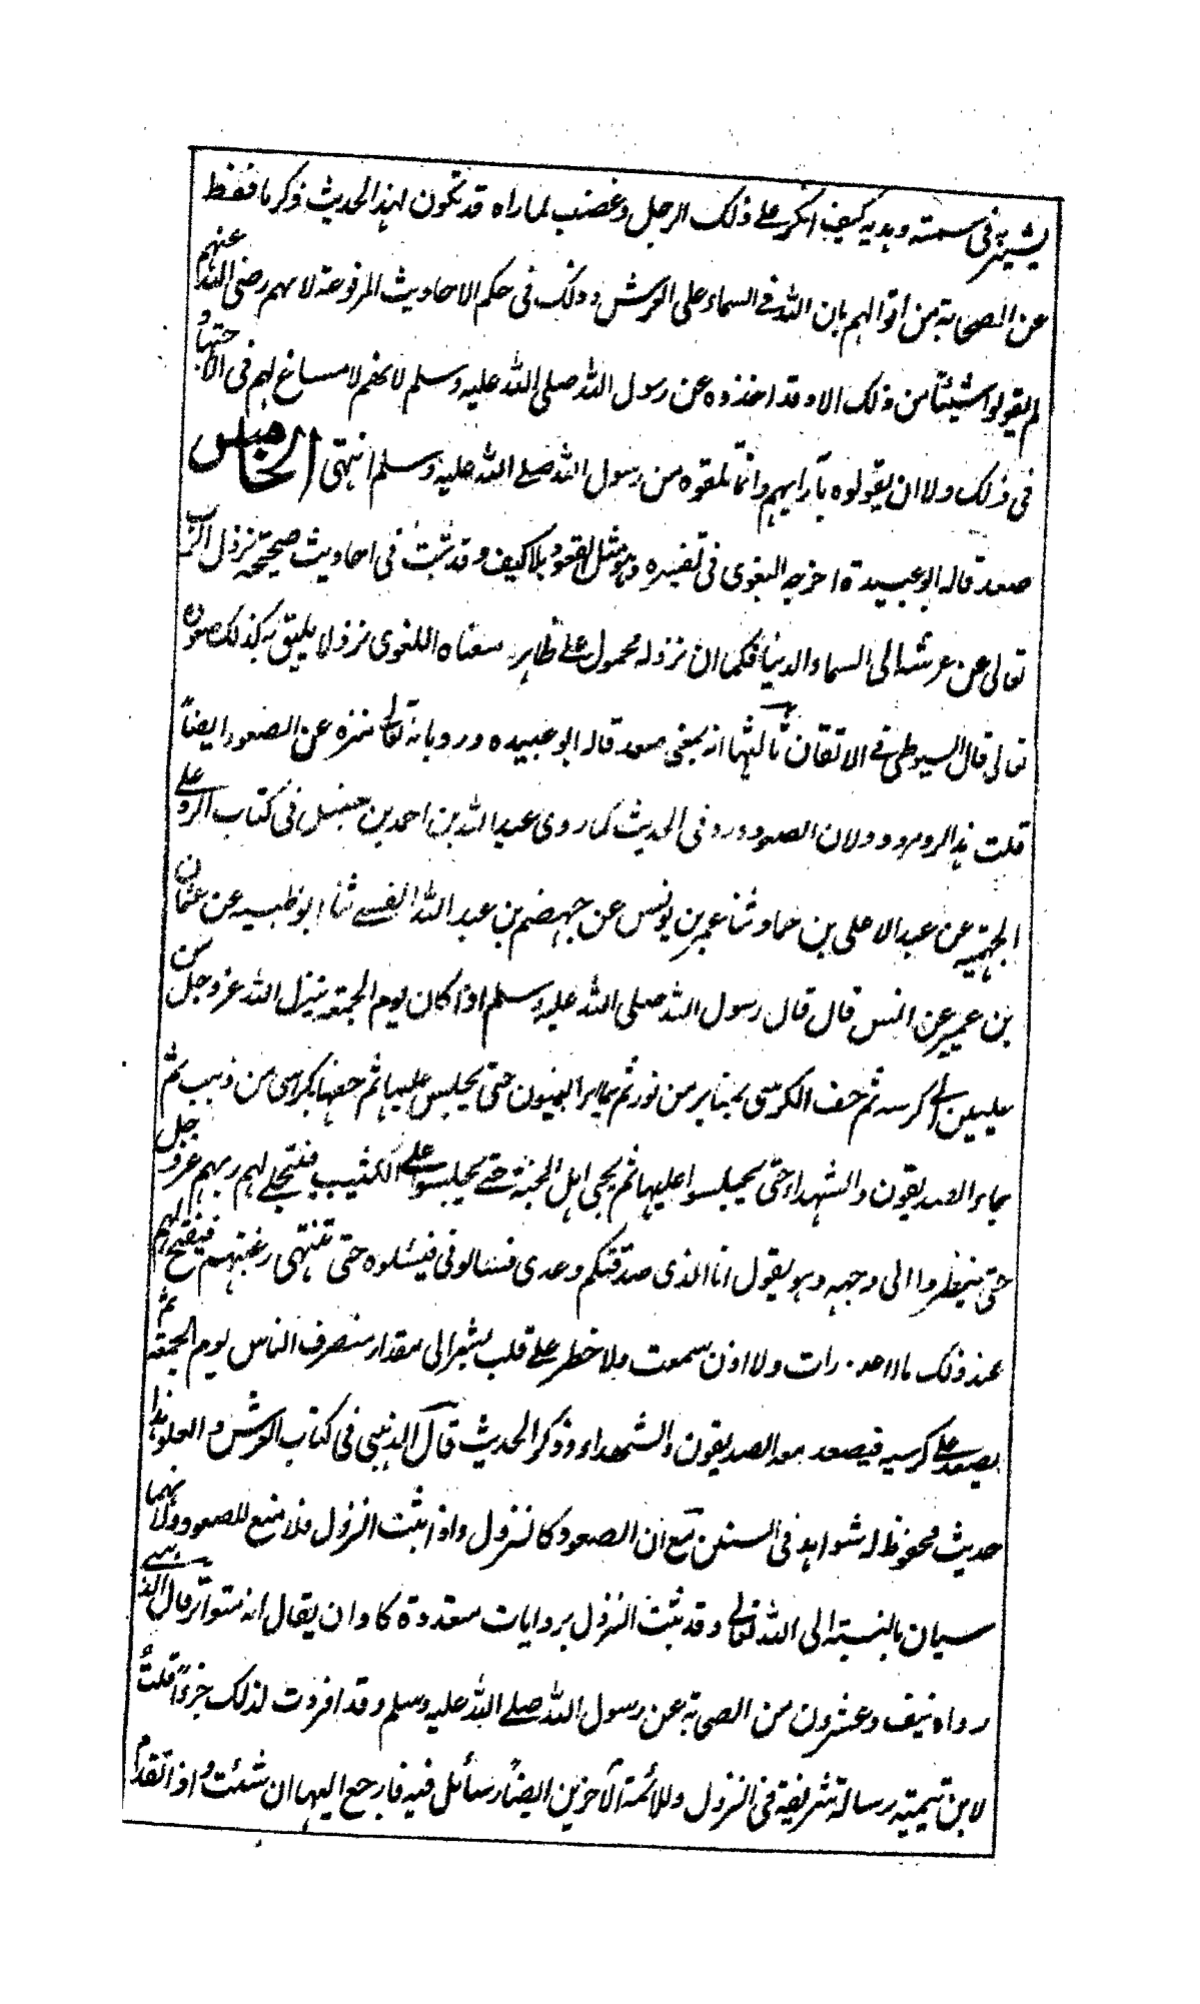 يشير به في سمته وهديه كيف انكر على ذلك الرجل وغضب لما راه قد تكون لهذا الحديث ذكر ما فقط
عن الصحابة من اقوالهم بان الله في السماء على العرش وذلك في حكم الاحاديث المرفوعة لانهم رضي الله عنهم
لم يقولوا شيئا من ذلك الا وقد اخذوه عن رسول الله صلى الله عليه وسلم لانهم لا مساغ لهم في الاجتهاد
في ذلك ولا ان يقولوه بآرايهم وانما تلقوه من رسول الله صلے الله عليه وسلم انتهى الخامس
صعد قاله ابو عبيدة اخرجه البغوى في تفسيره وهو مثل القعود بلا كيف وقد ثبت في احاديث صحيحة نزول الرب
تعالى عن عرشه الى السماء الدنيا فكما ان نزوله محمول على ظاهر معناه اللغوى نزولا يليق به كذلك صعوده
تعالى قال السيوطي في الاتقان ثالثها انه بمعنى صعد قاله ابو عبيده ورد بانه تعالى منزه عن الصعود ايضاً
قلت هذا الرد مردود ولان الصعود ورد في الحديث كما روى عبد الله بن احمد بن حنبل في كتاب الرد على
الجهمية عن عبد الاعلى بن حماد ثنا عمر بن يونس عن جهضم بن عبد الله القيسے ثنا ابو ظبيه عن عثمان
بن عمير عن انس قال قال رسول الله صلى الله عليه وسلم اذا كان يوم الجمعة ينزل الله عز وجل من
عليين الے كرسيه ثم حف الكرسى بمنابر من نور ثم جاء النبيون حتى يجلس عليها ثم حفها بكراسى من ذهب ثم
جاء الصديقون والشهداء حتى يجلسوا عليها ثم يجي اهل الجنة حتے يجلسوا على الكثيب فيتجلے لهم ربهم عز وجل
حتى ينظروا الى وجهه وهو يقول انا الذى صدقتكم وعدى فسالوني فيسئلوه حتى تنتهى رغبتهم فيفتح لهم
عند ذلك ما رات ولا اذن سمعت ولا خطر على قلب بشر الى مقدار منصرف الناس يوم الجمعة ثم
يصعد على كرسيه فيصعد معه الصديقون والشهداء وذكر الحديث قال الذهبي في كتاب العرش و العلو هذا
حديث محفوظ له شواهد في السنن مع ان الصعود كالنزول واذا ثبت النزول فلا منع للصعود ولانهما
سيان بالنسبة الى الله تعالى وقد ثبت النزول بروايات متعددة كاد ان يقال انه متواتر قال الذهبے
رواه نيف وعشرون من الصحابة عن رسول الله صلے الله عليه وسلم وقد افردت لذلك جزءاً قلت
لابن تيمية رسالة شريفة في النزول وللائمة الآخرين ايضاً رسائل فيه فارجع اليها ان شئت واذ اتقدم